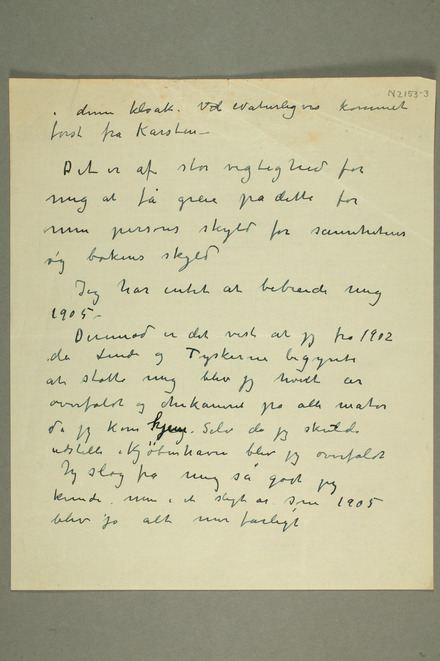 N2153-3
i denne kloak. Ved Naturligvis kommet
først fra Karsten –
Det er af stor vigtighed for
mig at få greie på dette for
min persons skyld for sannhetens
og bokens skyld
Jeg har intet at bebreide mig
1905 –
Derimod er det vist at jeg fra 1902
da Linde og Tyskerne begynte
at støtte mig blev jeg hvert år
overfaldt og chikaneret på alle måter
da jeg kom hjem. Selv da jeg skulde
udstille i Kjøbenhavn blev jeg overfaldt
Jeg slog fra mig så godt jeg
kunde. men i de slags som 1905
blev jo alt mer farligt